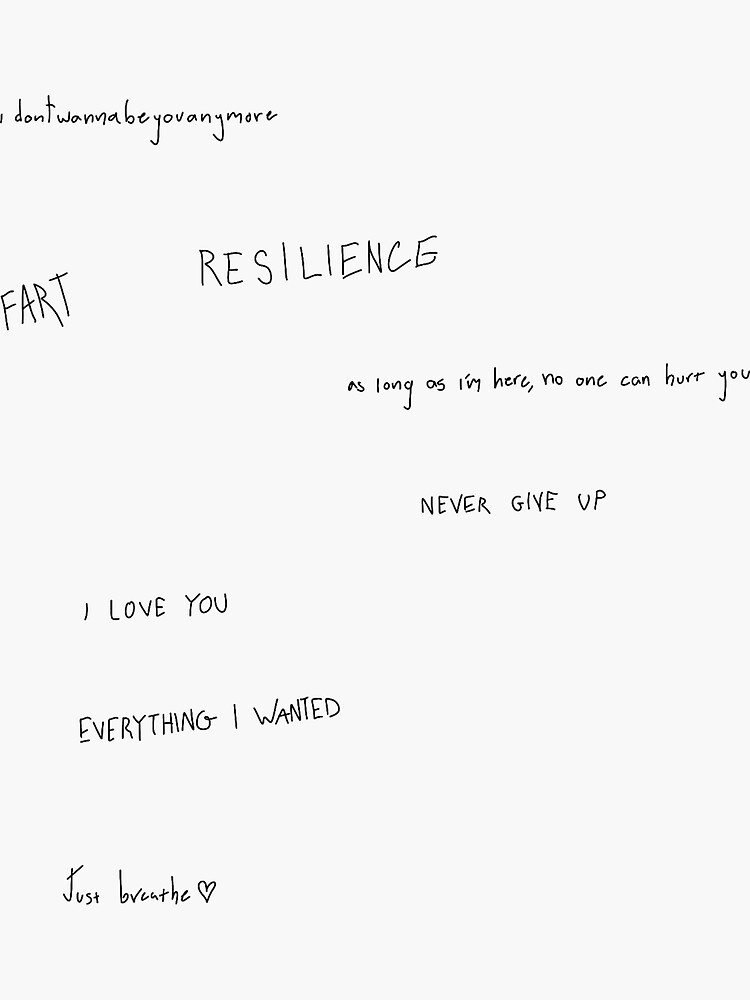 dontwannabeyouanymore
RESILIENCE
FART
as long as i'm here, no one can hurt you
NEVER GIVE UP
I LOVE YOU
EVERYTHING I WANTED
Just breathe♡